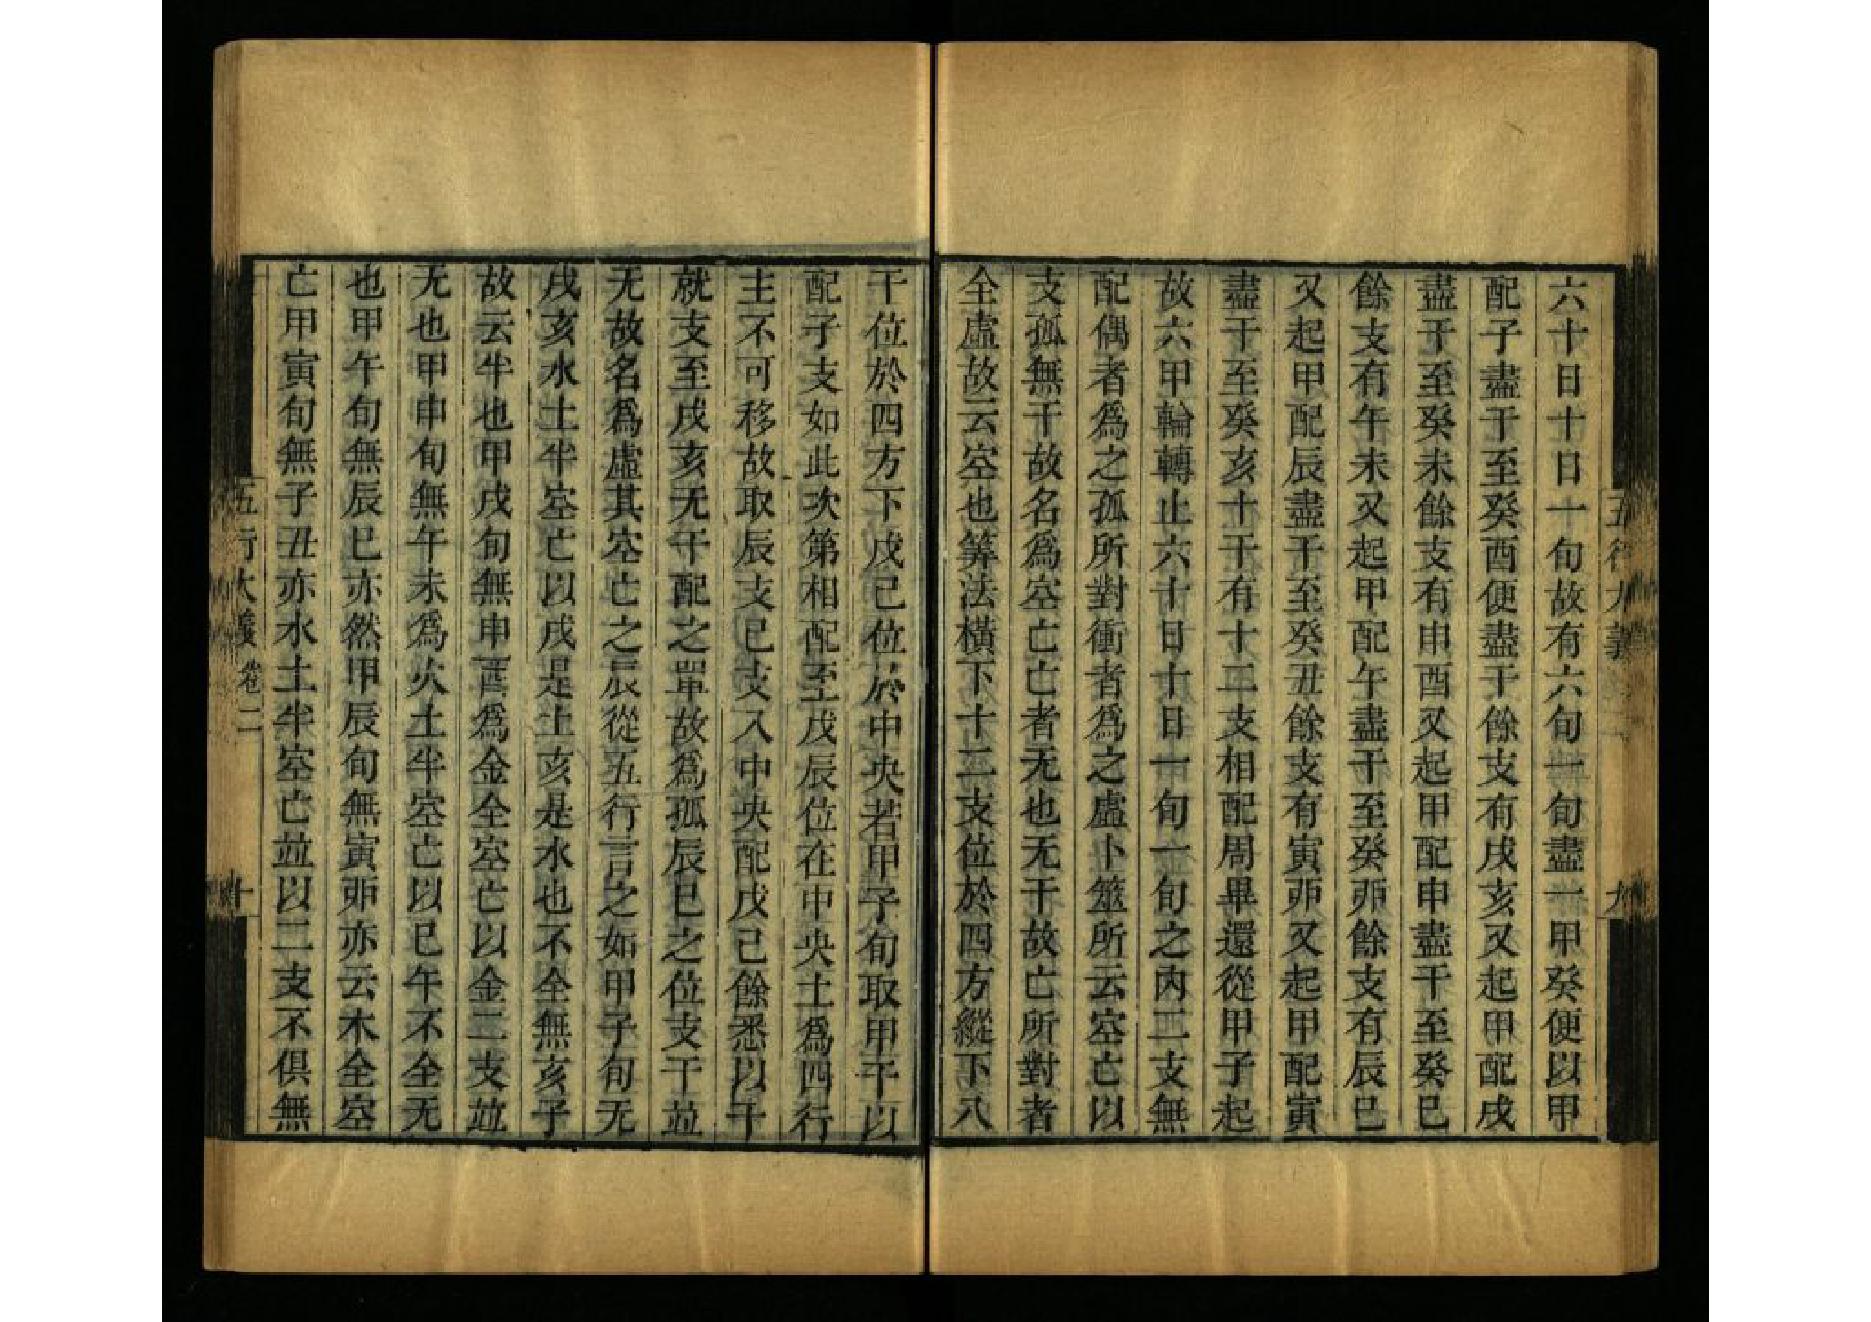 六十日十日一旬故有六旬一旬盡一甲癸便以甲
配子盡干至癸酉便盡干餘支有戌亥又起甲配戌
盡干至癸未餘支有申酉又起甲配申盡干至癸巳
餘支有午未又起甲配午盡干至癸卯餘支有辰巳
又起甲配辰盡干至癸丑餘支有寅卯又起甲配寅
盡干至癸亥十干有十二支相配周畢還從甲子起
故六甲輪轉止六十日十日一旬一旬之內二支無
配偶者爲之孤所對衝者爲之虛卜筮所云空亡以
支孤無干故名爲空亡亡者无也无干故亡所對者
全虛故云空也筭法橫下十二支位於四方縱下八
干位於四方下戊己位於中央若甲子旬取甲干以
配子支如此次第相配至戊辰位在中央土爲四行
主不可移故取辰支巳支入中央配戊己餘悉以干
就支至戌亥无干配之單故爲孤辰巳之位支干並
无故名爲虛其空亡之辰從五行言之如甲子旬无
戌亥水土半空亡以戌是土亥是水也不全無亥子
故云半也甲戌旬無申酉爲金全空亡以金二支並
无也甲申旬無午未爲火土半空亡以巳午不全无
也甲午旬無辰巳亦然甲辰旬無寅卯亦云木全空
亡甲寅旬無子丑亦水土半空亡並以二支不俱無
五行大義
九
五行大義 卷二
十